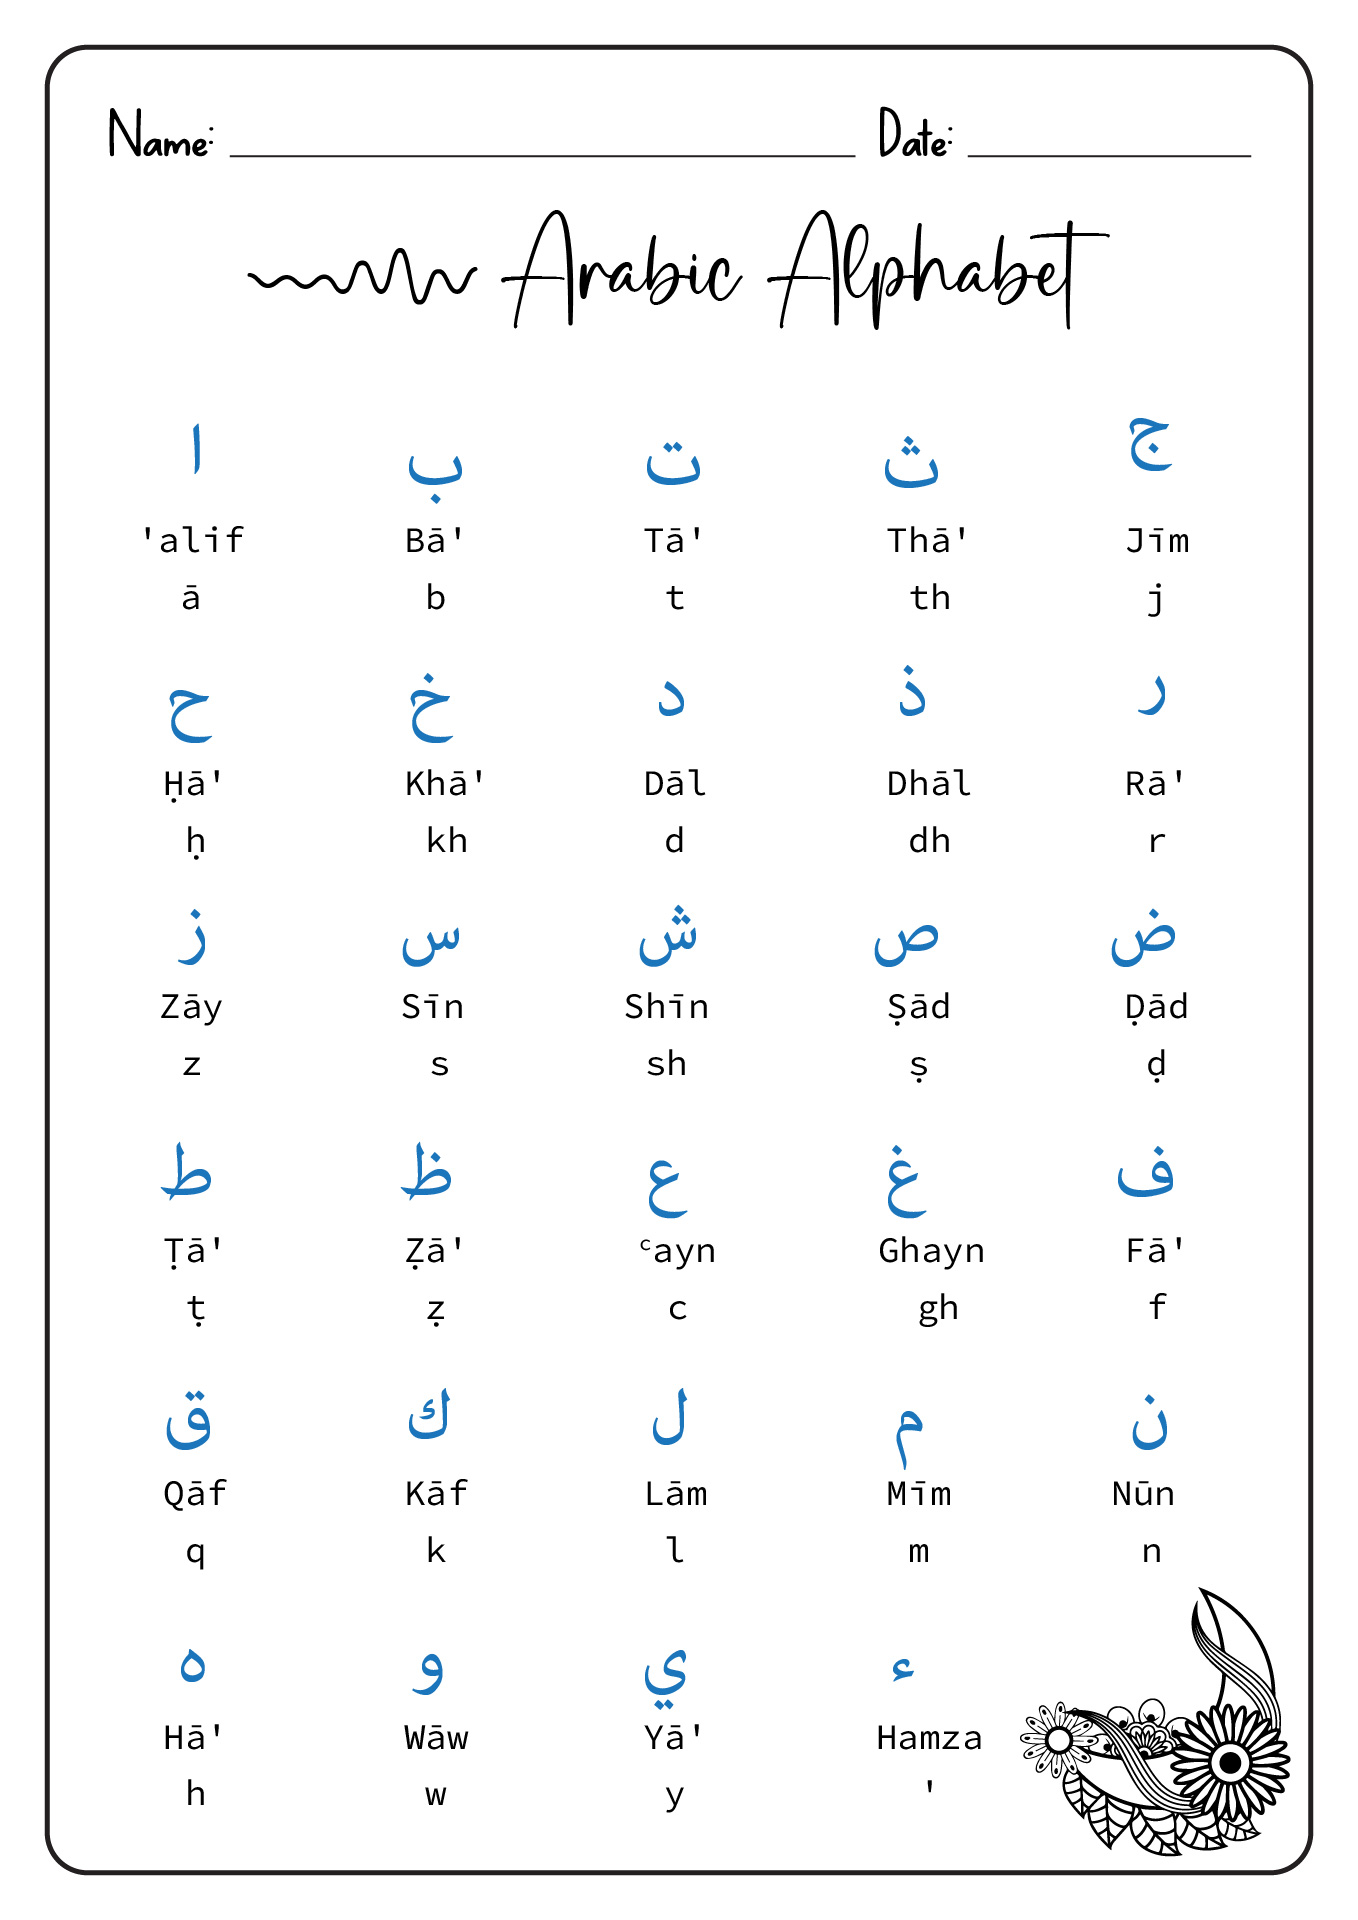 Name: Date:
Arabic Alphabet
ا ب ت ث ج
'alif Bā' Tā' Thā' Jīm
ā b t th j
ح خ د ذ ر
Ḥā' Khā' Dāl Dhāl Rā'
ḥ kh d dh r
ز س ش ص ض
Zāy Sīn Shīn Ṣād Ḍād
z s sh ṣ ḍ
ط ظ ع غ ف
Ṭā' Ẓā' ᶜayn Ghayn Fā'
ṭ ẓ c gh f
ق ك ل م ن
Qāf Kāf Lām Mīm Nūn
q k l m n
ه و ي ء
Hā' Wāw Yā' Hamza
h w y '